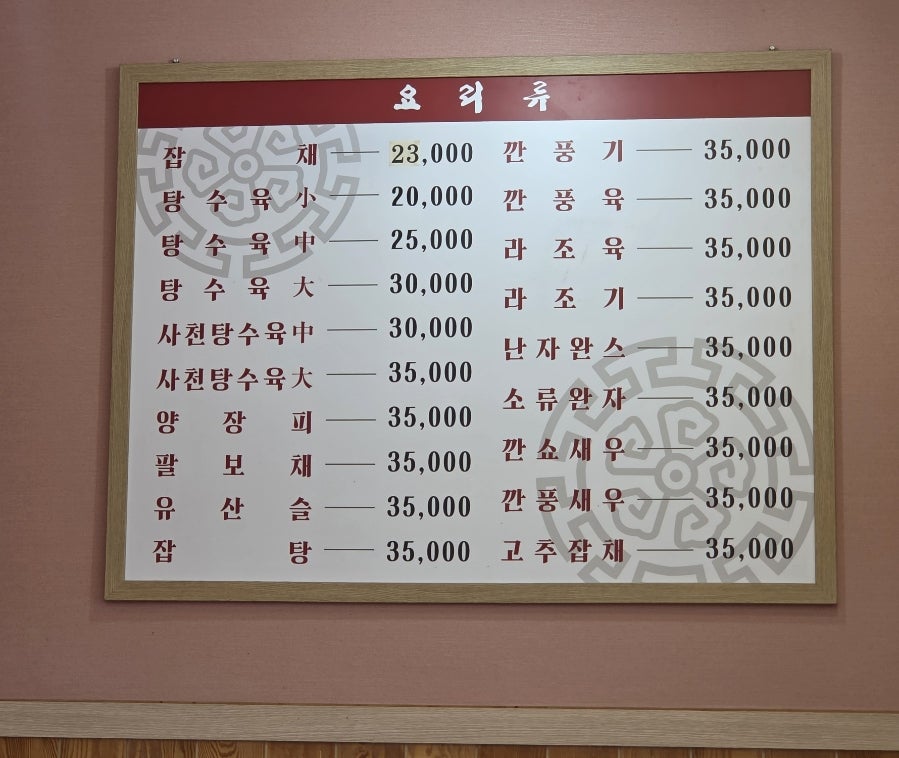 요리류
잡채 23,000
탕수육 小 20,000
탕수육 中 25,000
탕수육 大 30,000
사천탕수육 中 30,000
사천탕수육 大 35,000
양장피 35,000
팔보채 35,000
유산슬 35,000
잡탕 35,000
깐풍기 35,000
깐풍육 35,000
라조육 35,000
라조기 35,000
난자완스 35,000
소류완자 35,000
깐쇼새우 35,000
깐풍새우 35,000
고추잡채 35,000